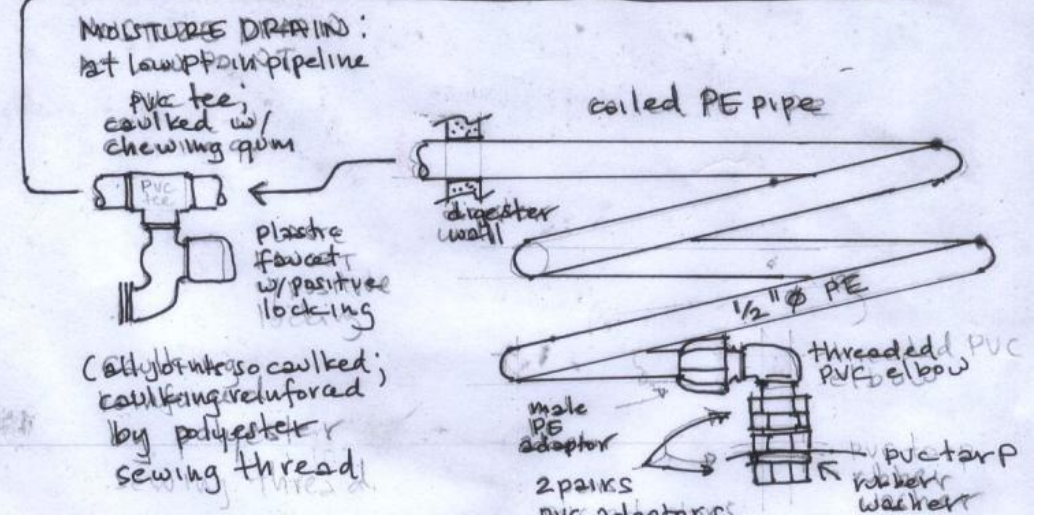 MOISTURE DRAIN:
at low pt in pipeline
PVC tee;
caulked w/
chewing gum
PVC
tee
plastic
faucet
w/positive
locking
(all joints so caulked;
caulking reinforced
by polyester
sewing thread
coiled PE pipe
digester
wall
1/2" ø PE
threaded
PVC elbow
male
PE
adaptor
2 pairs
PVC adaptors
PVC tarp
rubber
washer